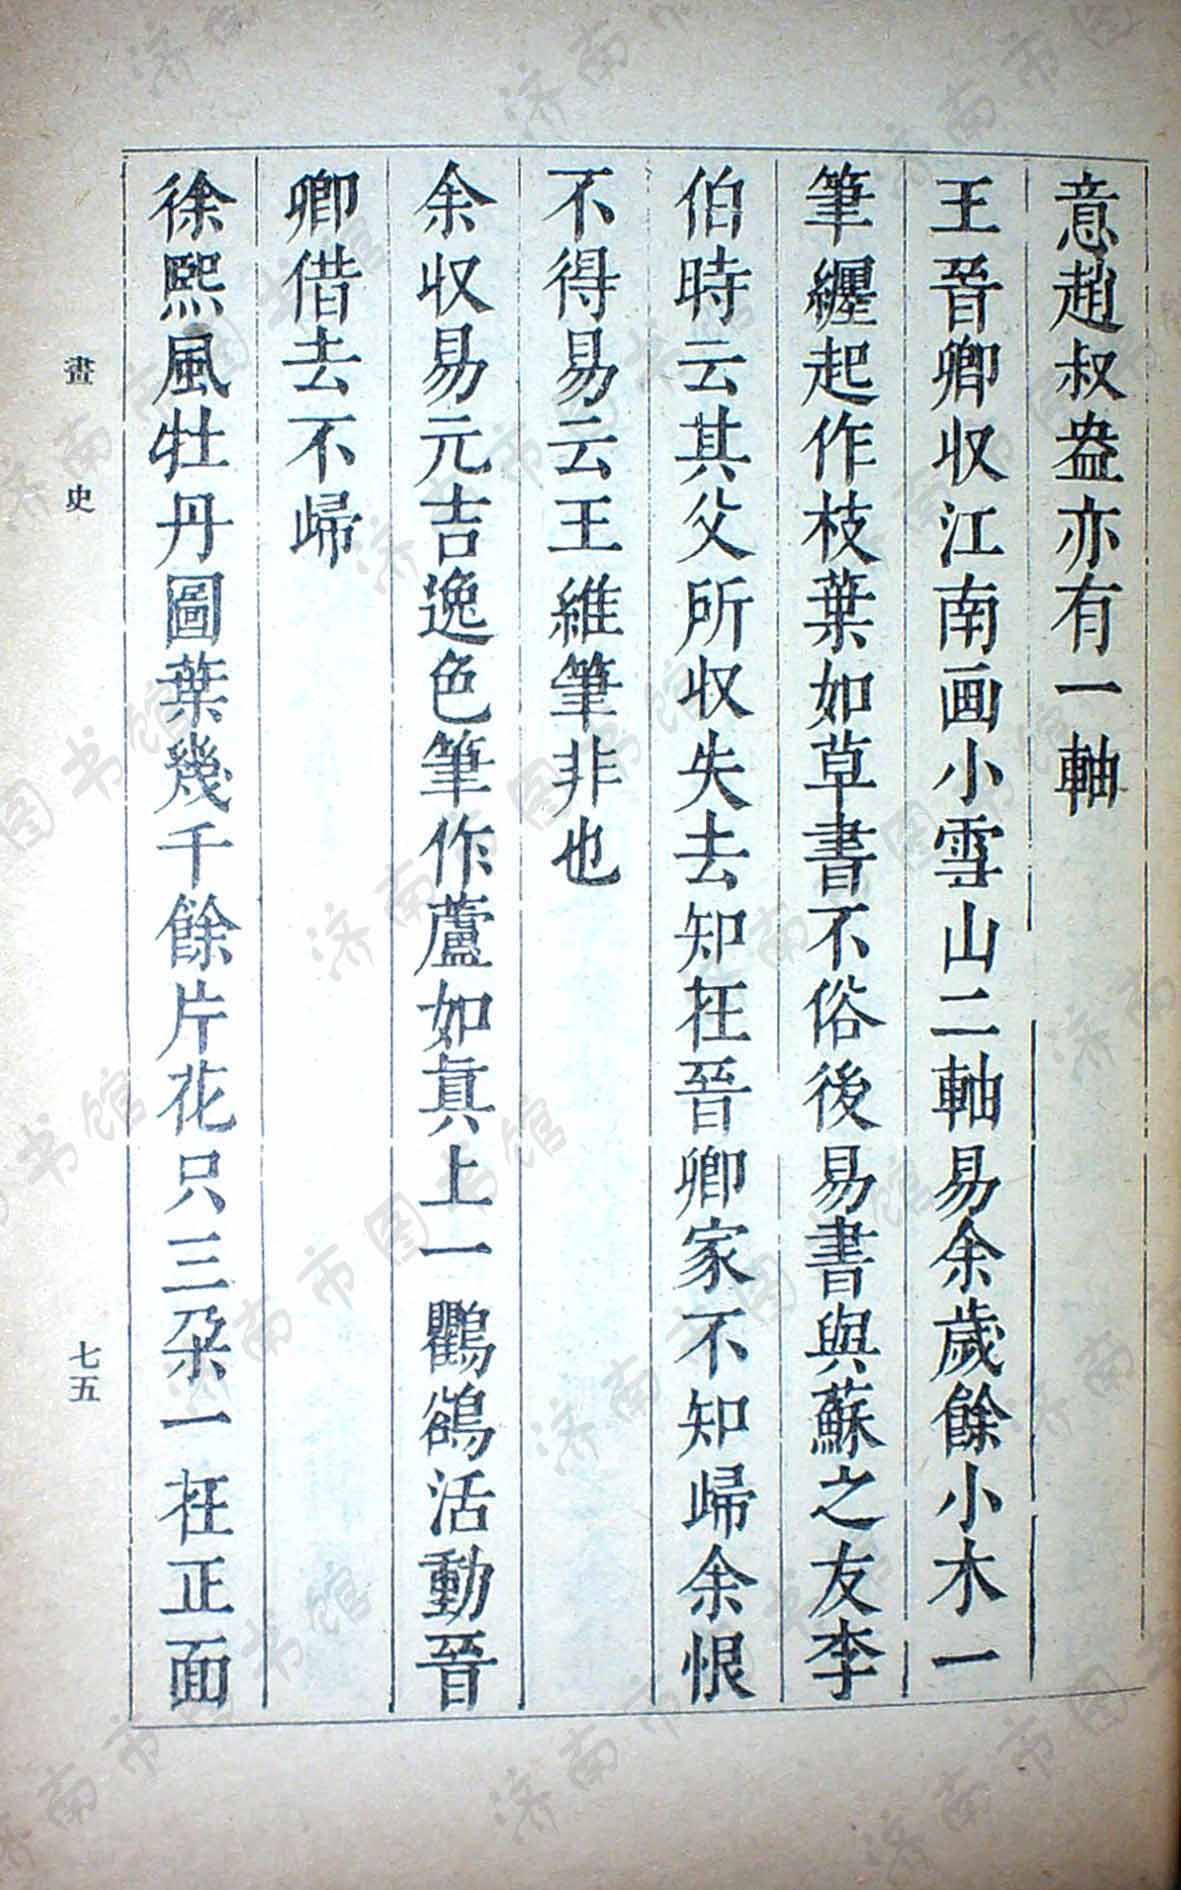 意趙叔盎亦有一軸
王晉卿収江南画小雪山二軸易余歲餘小木一
筆纏起作枝葉如草書不俗後易書與蘇之友李
伯時云其父所収失去知在晉卿家不知歸余恨
不得易云王維筆非也
余収易元吉逸色筆作蘆如眞上一鸜鵒活動晉
卿借去不歸
徐熙風牡丹圖葉幾千餘片花只三朶一在正面
畫史
七五
济南市图书馆